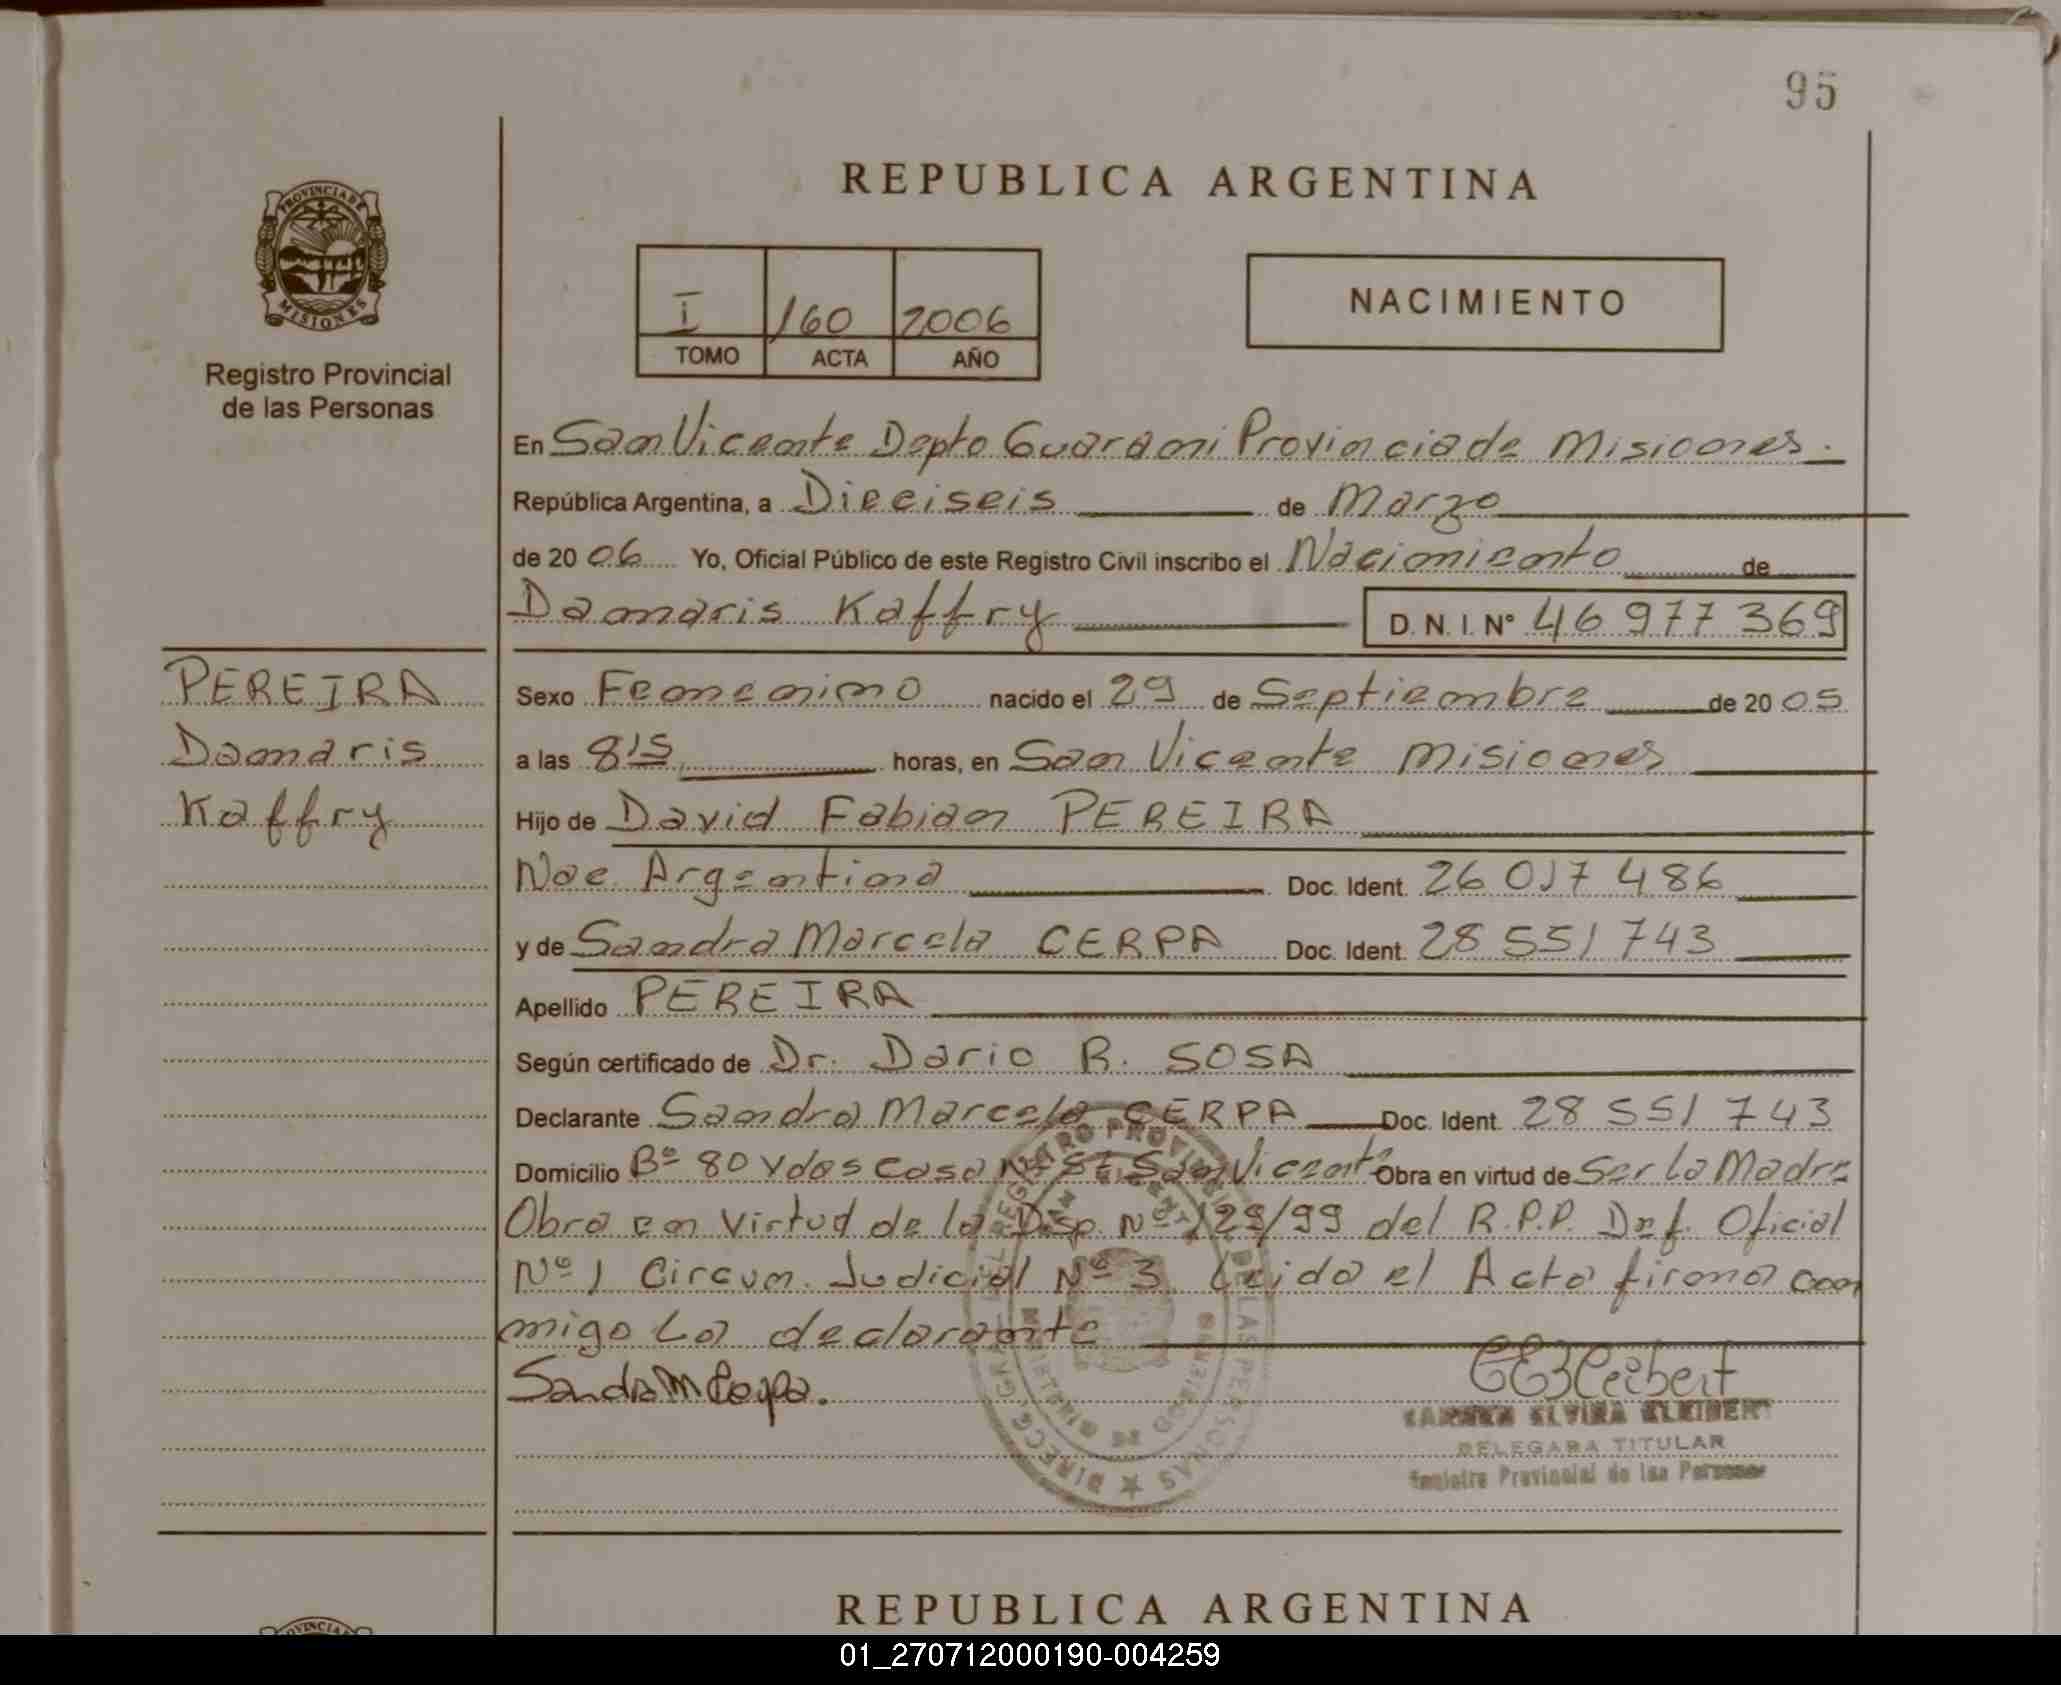 95
REPUBLICA ARGENTINA
PROVINCIA DE
MISIONES
Registro Provincial
de las Personas
I 160 2006
TOMO ACTA AÑO
NACIMIENTO
En San Vicente Depto Guarani Provincia de Misiones.
República Argentina, a Dieciseis de Marzo
de 2006 Yo, Oficial Público de este Registro Civil inscribo el Nacimiento de
Damaris Kaffry D.N.I. Nº 46 977 369
PEREIRA
Damaris
Kaffry
Sexo Femenino nacido el 29 de Septiembre de 2005
a las 8:15 horas, en San Vicente Misiones
Hijo de David Fabian PEREIRA
Nac. Argentina Doc. Ident. 26 017 486
y de Sandra Marcela CERPA Doc. Ident. 28 551 743
Apellido PEREIRA
Según certificado de Dr. Dario R. SOSA
Declarante Sandra Marcela CERPA Doc. Ident. 28 551 743
Domicilio Bº 80 Vdas Casa San Vicente Obra en virtud de Ser la Madre
Obra en virtud de la Disp. Nº 129/99 del R.P.P. Def. Oficial
Nº 1 Circun. Judicial Nº 3 Leida el Acta firma con
migo La declarante
Sandra M Cerpa.
DIRECC. GRAL. DEL REGISTRO PROVINCIAL DE LAS PERSONAS
MINISTERIO DE GOBIERNO
SAN VICENTE
CEKleibert
CARMEN ELVIRA KLEIBERT
DELEGADA TITULAR
Registro Provincial de las Personas
REPUBLICA ARGENTINA
01_270712000190-004259